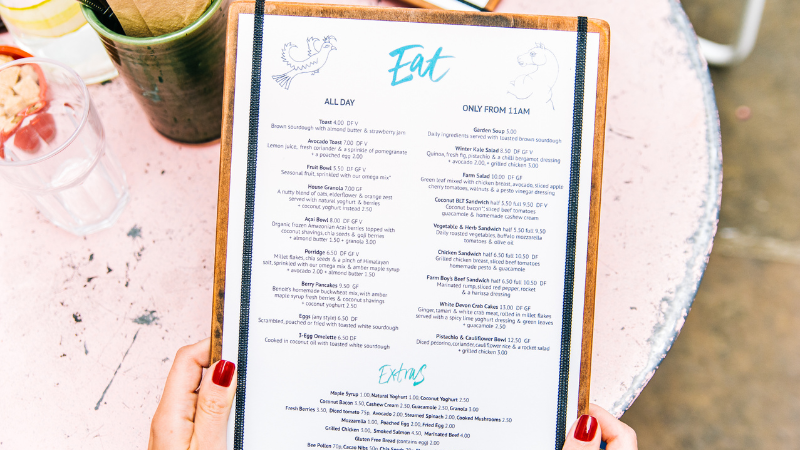 Eat
ALL DAY
Toast 4.00 DF V
Brown sourdough with almond butter & strawberry jam
Avocado Toast 7.00 DF V
Lemon juice, fresh coriander & a sprinkle of pomegranate
+ a poached egg 2.00
Fruit Bowl 5.50 DF GF V
Seasonal fruit, sprinkled with our omega mix*
House Granola 7.00 GF
A nutty blend of oats, elderflower & orange zest
served with natural yoghurt & berries
+ coconut yoghurt instead 2.50
Açaí Bowl 8.00 DF GF V
Organic frozen Amazonian Açaí berries topped with
coconut shavings, chia seeds & goji berries
+ almond butter 1.50 + granola 3.00
Porridge 6.50 DF GF V
Millet flakes, chia seeds & a pinch of Himalayan
salt, sprinkled with our omega mix & amber maple syrup
+ avocado 2.00 + almond butter 1.50
Berry Pancakes 9.50 GF
Benoit's homemade buckwheat mix, with amber
maple syrup fresh berries & coconut shavings
+ coconut yoghurt 2.50
Eggs (any style) 6.50 DF
Scrambled, poached or fried with toasted white sourdough
3-Egg Omelette 6.50 DF
Cooked in coconut oil with toasted white sourdough
ONLY FROM 11AM
Garden Soup 5.00
Daily ingredients served with toasted Brown sourdough
Winter Kale Salad 8.50 DF GF V
Quinoa, fresh fig, pistachio & a chilli bergamot dressing
+ avocado 2.00, + grilled chicken 3.00
Farm Salad 10.00 DF GF
Green leaf mixed with chicken breast, avocado, sliced apple
cherry tomatoes, walnuts & a pesto vinegar dressing
Coconut BLT Sandwich half 5.50 full 9.50 DF V
Coconut bacon**, sliced beef tomatoes
guacamole & homemade cashew cream
Vegetable & Herb Sandwich half 5.50 full 9.50
Daily roasted vegetables, buffalo mozzarella
tomatoes & olive oil
Chicken Sandwich half 6.50 full 10.50 DF
Grilled chicken breast, sliced beef tomatoes
homemade pesto & guacamole
Farm Boy's Beef Sandwich half 6.50 full 10.50 DF
Marinated rump, sliced red pepper, rocket
& a harissa dressing
White Devon Crab Cakes 13.00 DF GF
Ginger, tamari & white crab meat, rolled in millet flakes
served with a spicy lime yoghurt dressing & green leaves
+ guacamole 2.50
Pistachio & Cauliflower Bowl 12.50 GF
Diced pecorino, coriander, cauliflower rice & a rocket salad
+ grilled chicken 3.00
Extras
Maple Syrup 1.00, Natural Yoghurt 1.00, Coconut Yoghurt 2.50
Coconut Bacon 3.50, Cashew Cream 2.50, Guacamole 2.50, Granola 3.00
Fresh Berries 3.50, Diced tomato 75p, Avocado 2.00, Steamed Spinach 2.00, Cooked Mushrooms 2.50
Mozzarella 3.00, Poached Egg 2.00, Fried Egg 2.00
Grilled Chicken 3.00, Smoked Salmon 4.50, Marinated Beef 4.00
Gluten Free Bread (contains egg) 2.00
Bee Pollen 70p, Cacao Nibs 50p, Chia Seeds